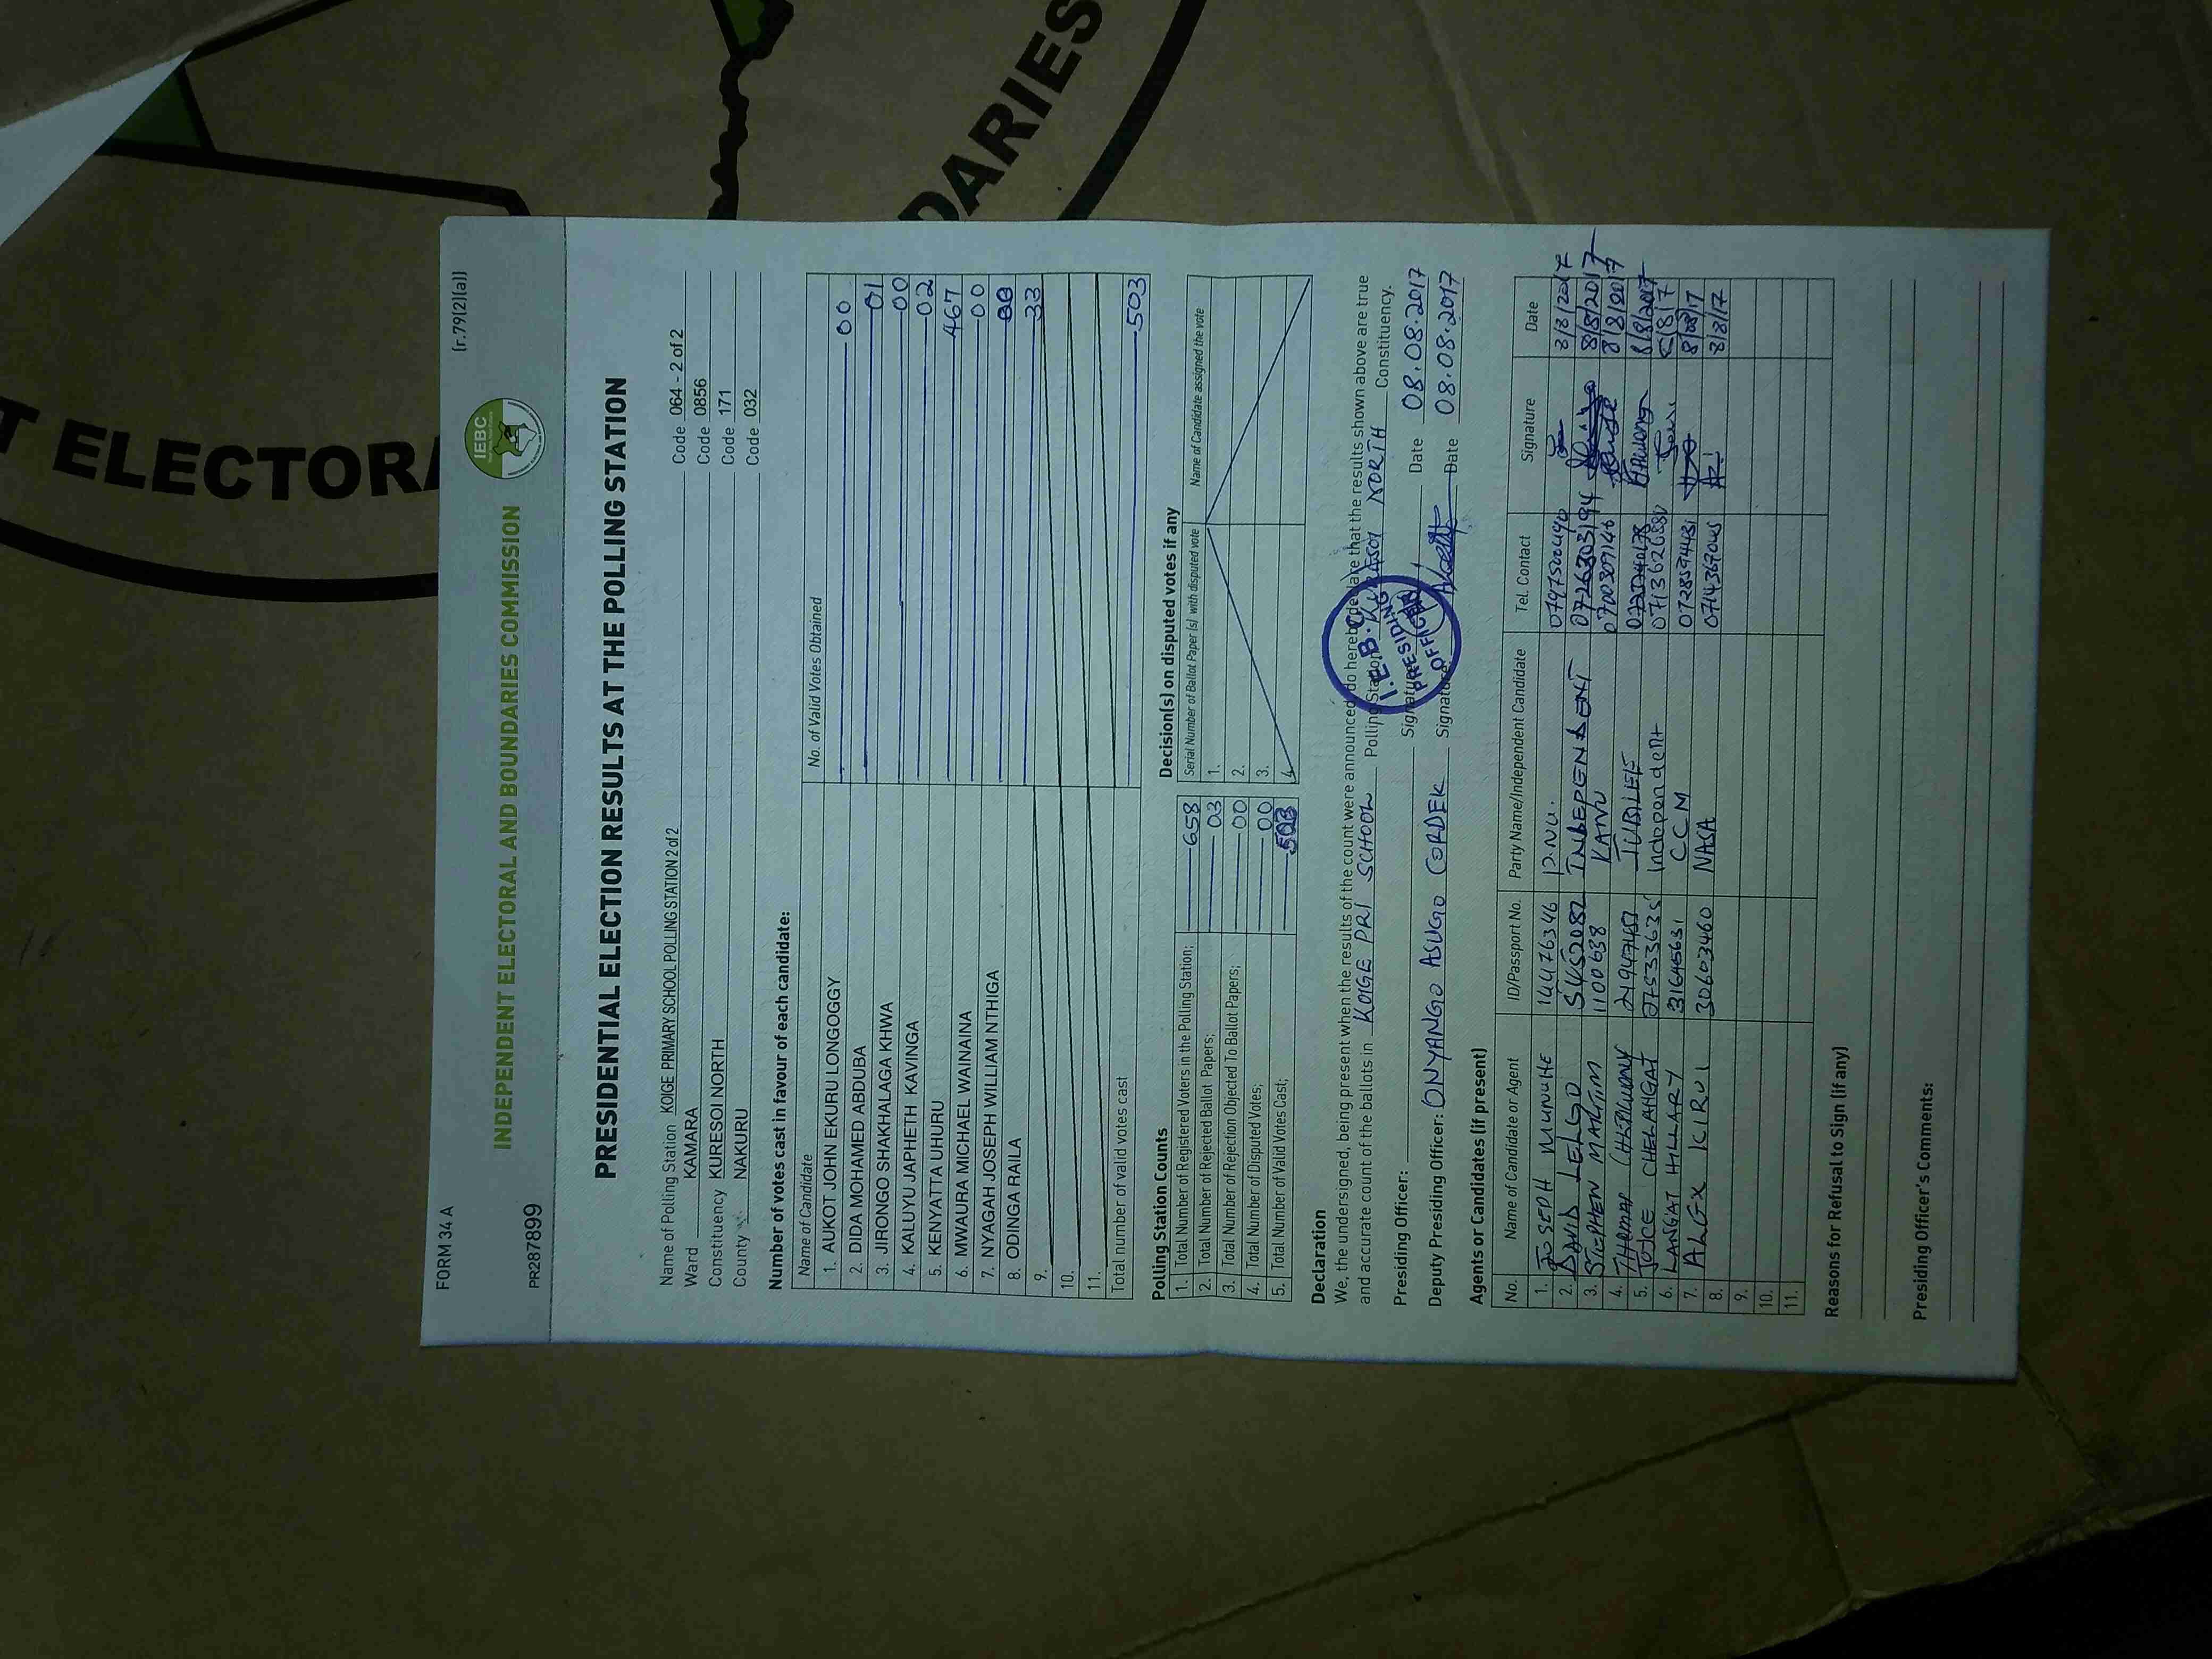 T ELECTORA
DARIES
FORM 34 A
(r.79(2)(a))
INDEPENDENT ELECTORAL AND BOUNDARIES COMMISSION
IEBC
PR287899
PRESIDENTIAL ELECTION RESULTS AT THE POLLING STATION
Name of Polling Station KOIGE PRIMARY SCHOOL POLLING STATION 2 of 2 Code 064 - 2 of 2
Ward KAMARA Code 0856
Constituency KURESOI NORTH Code 171
County NAKURU Code 032
Number of votes cast in favour of each candidate:
Name of Candidate No. of Valid Votes Obtained
1. AUKOT JOHN EKURU LONGOGGY 00
2. DIDA MOHAMED ABDUBA 01
3. JIRONGO SHAKHALAGA KHWA 00
4. KALUYU JAPHETH KAVINGA 02
5. KENYATTA UHURU 467
6. MWAURA MICHAEL WAINAINA 00
7. NYAGAH JOSEPH WILLIAM NTHIGA 00
8. ODINGA RAILA 33
9.
10.
11.
Total number of valid votes cast 503
Polling Station Counts
1. Total Number of Registered Voters in the Polling Station; 658
2. Total Number of Rejected Ballot Papers; 03
3. Total Number of Rejection Objected To Ballot Papers; 00
4. Total Number of Disputed Votes; 00
5. Total Number of Valid Votes Cast; 503
Decision(s) on disputed votes if any
Serial Number of Ballot Paper (s) with disputed vote Name of Candidate assigned the vote
1.
2.
3.
4.
Declaration
We, the undersigned, being present when the results of the count were announced, do hereby declare that the results shown above are true
and accurate count of the ballots in KOIGE PRI SCHOOL Polling Station, KURESOI NORTH Constituency.
Presiding Officer: Signature Date 08.08.2017
Deputy Presiding Officer: ONYANGO ASUGO CORDEK Signature Date 08.08.2017
I.E.B.C
PRESIDING
OFFICER
Agents or Candidates (if present)
No. Name of Candidate or Agent ID/Passport No. Party Name/Independent Candidate Tel. Contact Signature Date
1. JOSEPH MUNUHE 14476346 P.N.U. 8/8/2017
2. DAVID LELGO INDEPENDENT 0726803194 8/8/2017
3. STEPHEN 1100638 KANU 0700307146 8/8/2017
4. THOMAS JUBILEE 8/8/2017
5. JOYCE CHELANGAT Independent 8/8/17
6. LANGAT HILLARY 31645631 C C M 8/08/17
7. ALEX KIRUI 30603460 NASA 8/8/17
8.
9.
10.
11.
Reasons for Refusal to Sign (if any)
Presiding Officer's Comments: